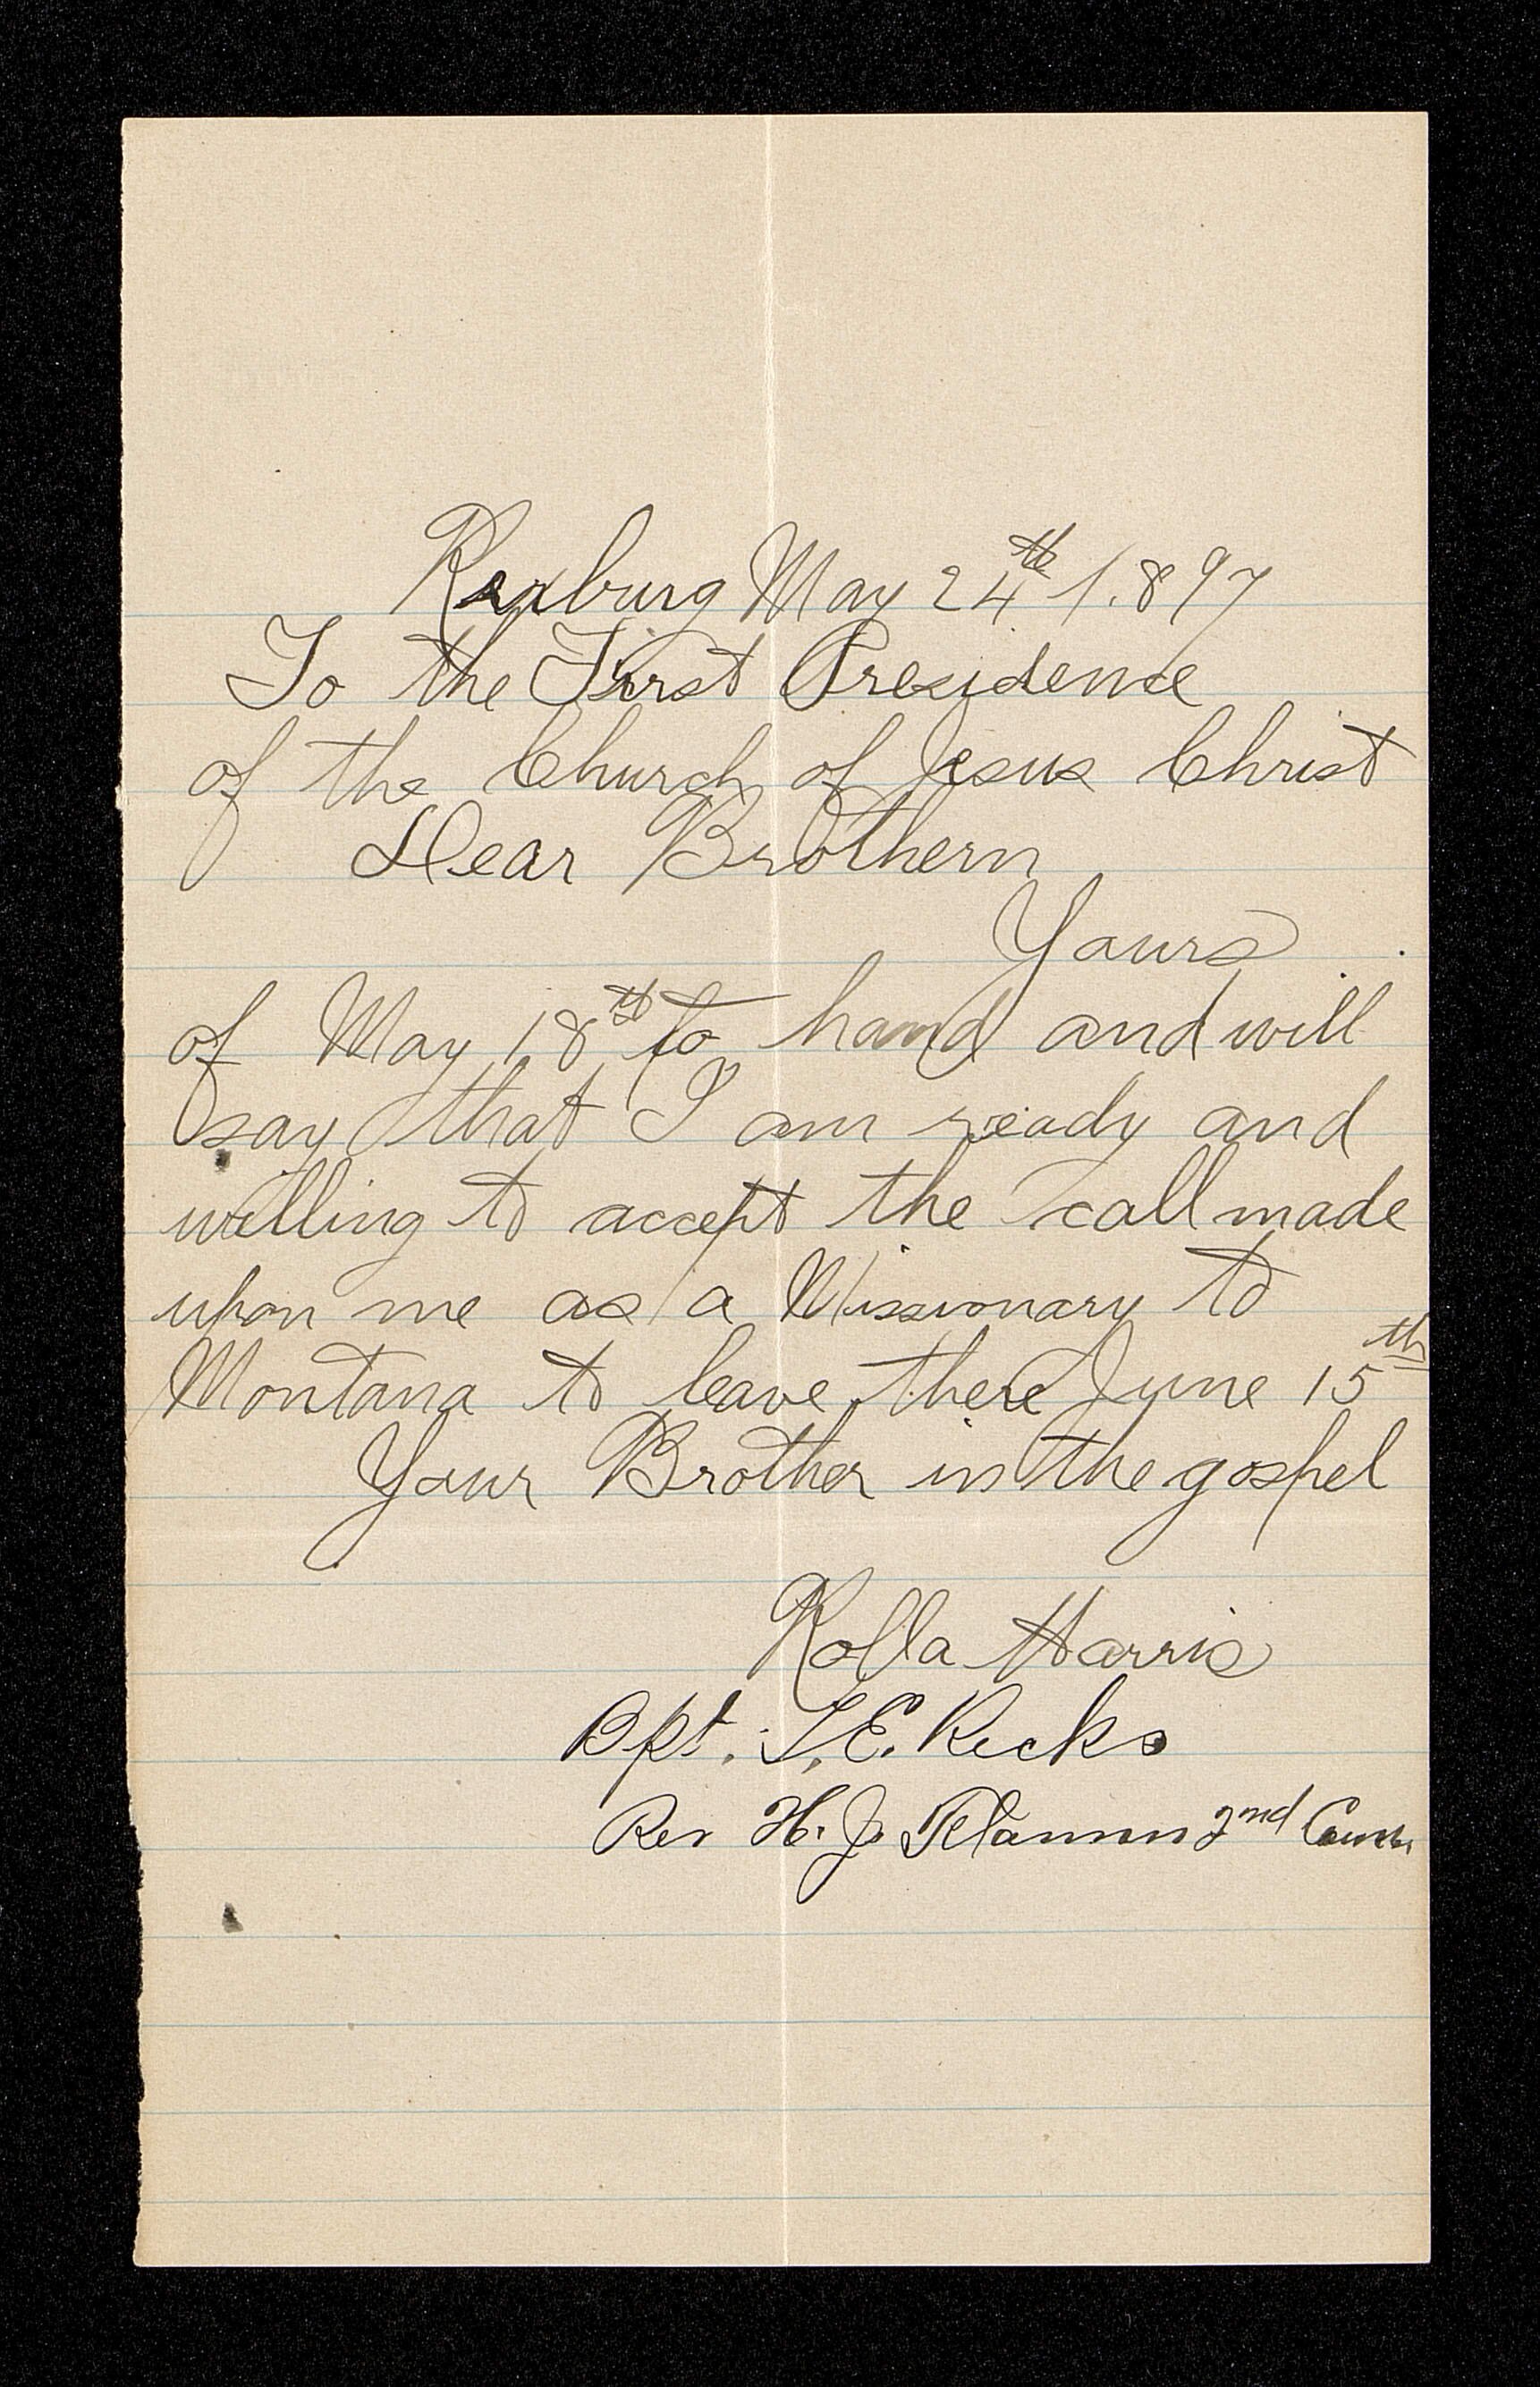 Rexburg May 24th 1.897
To the First Presidence
of the Church of Jesus Christ
Dear Brothern
Yours
of May 18th to hand and will
say that I am ready and
willing to accept the call made
upon me as a Missionary to
Montana to leave there June 15th
Your Brother in the gospel
Rolla Harris
T. E. Ricks
H. J. Flamm 2nd